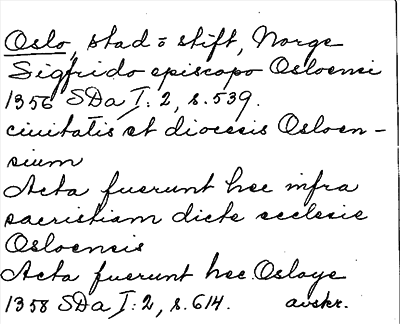 Oslo, stad o stift, Norge
Sigfrido episcopo Osloensi
1356 SDa I: 2, s. 539.
ciuitatis et diocesis Osloen-
sium
Acta fuerunt hec infra
sacristiam dicte ecclesie
Osloensis
Acta fuerunt hec Osloye
1358 SDa I: 2, s. 614. avskr.